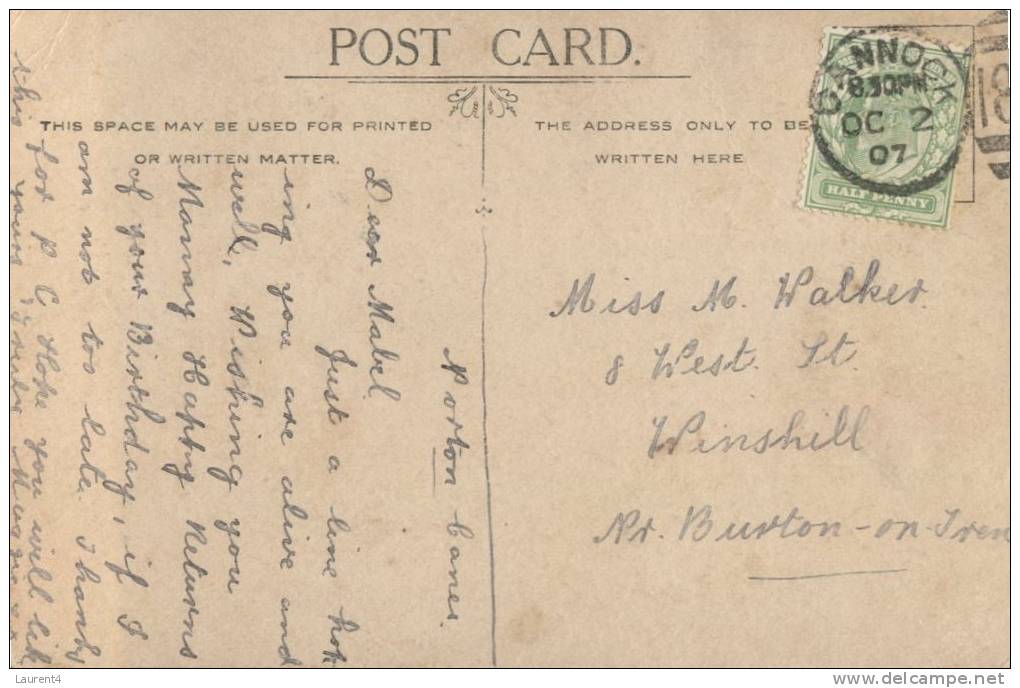 POST CARD.
THIS SPACE MAY BE USED FOR PRINTED
OR WRITTEN MATTER.
THE ADDRESS ONLY TO BE
WRITTEN HERE
CANNOCK
8.30PM
OC 2
07
18
HALF PENNY
Norton Canes.
Dear Mabel
Just a line hop
ing you are alive and
well, Wishing you
Manay Happy Returns
of your Birthday, if I
am not too late. Thanks
for P. C. Hope you will lik
this yours
Miss M. Walker.
8 West. St.
Winshill
Nr. Burton-on-Tren
Laurent4
www.delcampe.net